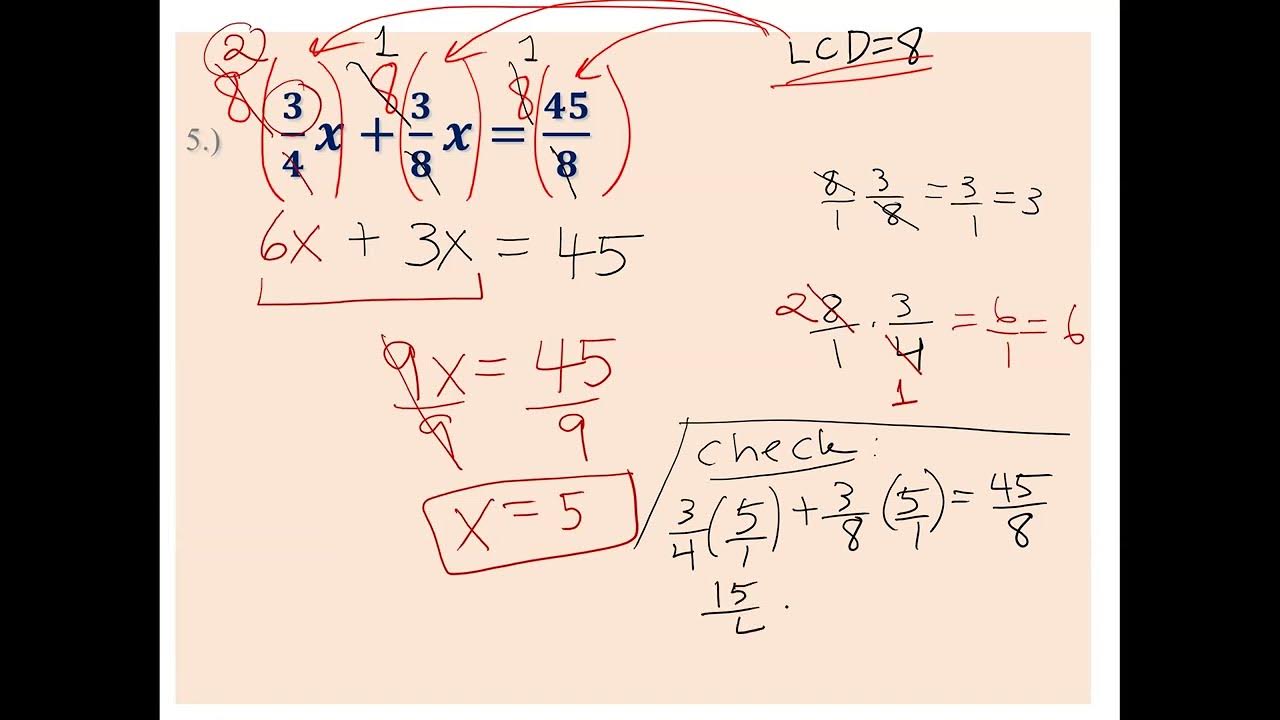 LCD=8
2 1 1
8 (3/4 x) + 8 (3/8 x) = 8 (45/8)
5.)
6x + 3x = 45
9x/9 = 45/9
x = 5
8/1 · 3/8 = 3/1 = 3
2 8/1 · 3/4 = 6/1 = 6
1
Check:
3/4 (5/1) + 3/8 (5/1) = 45/8
15/L